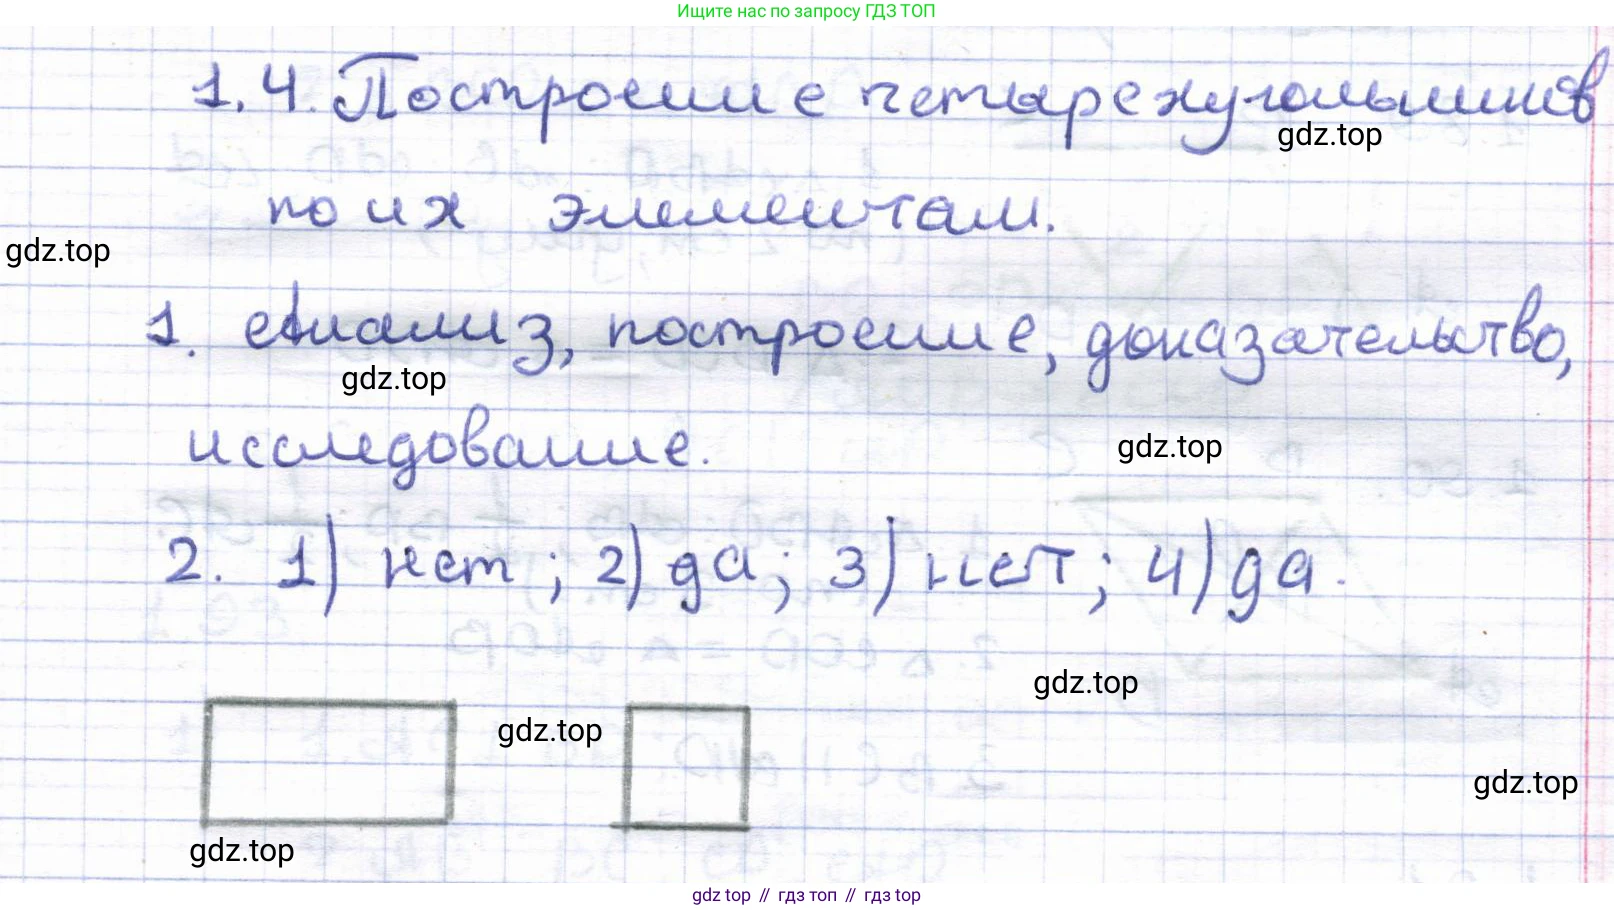 Ищите нас по запросу ГДЗ ТОП
1.4. Построение четырехугольников
gdz.top
по их элементам.
gdz.top
1. Анализ, построение, доказательство,
gdz.top
исследование.
gdz.top
2. 1) нет; 2) да; 3) нет; 4) да.
gdz.top
gdz.top
gdz.top
gdz.top
gdz top // гдз топ // гдз top